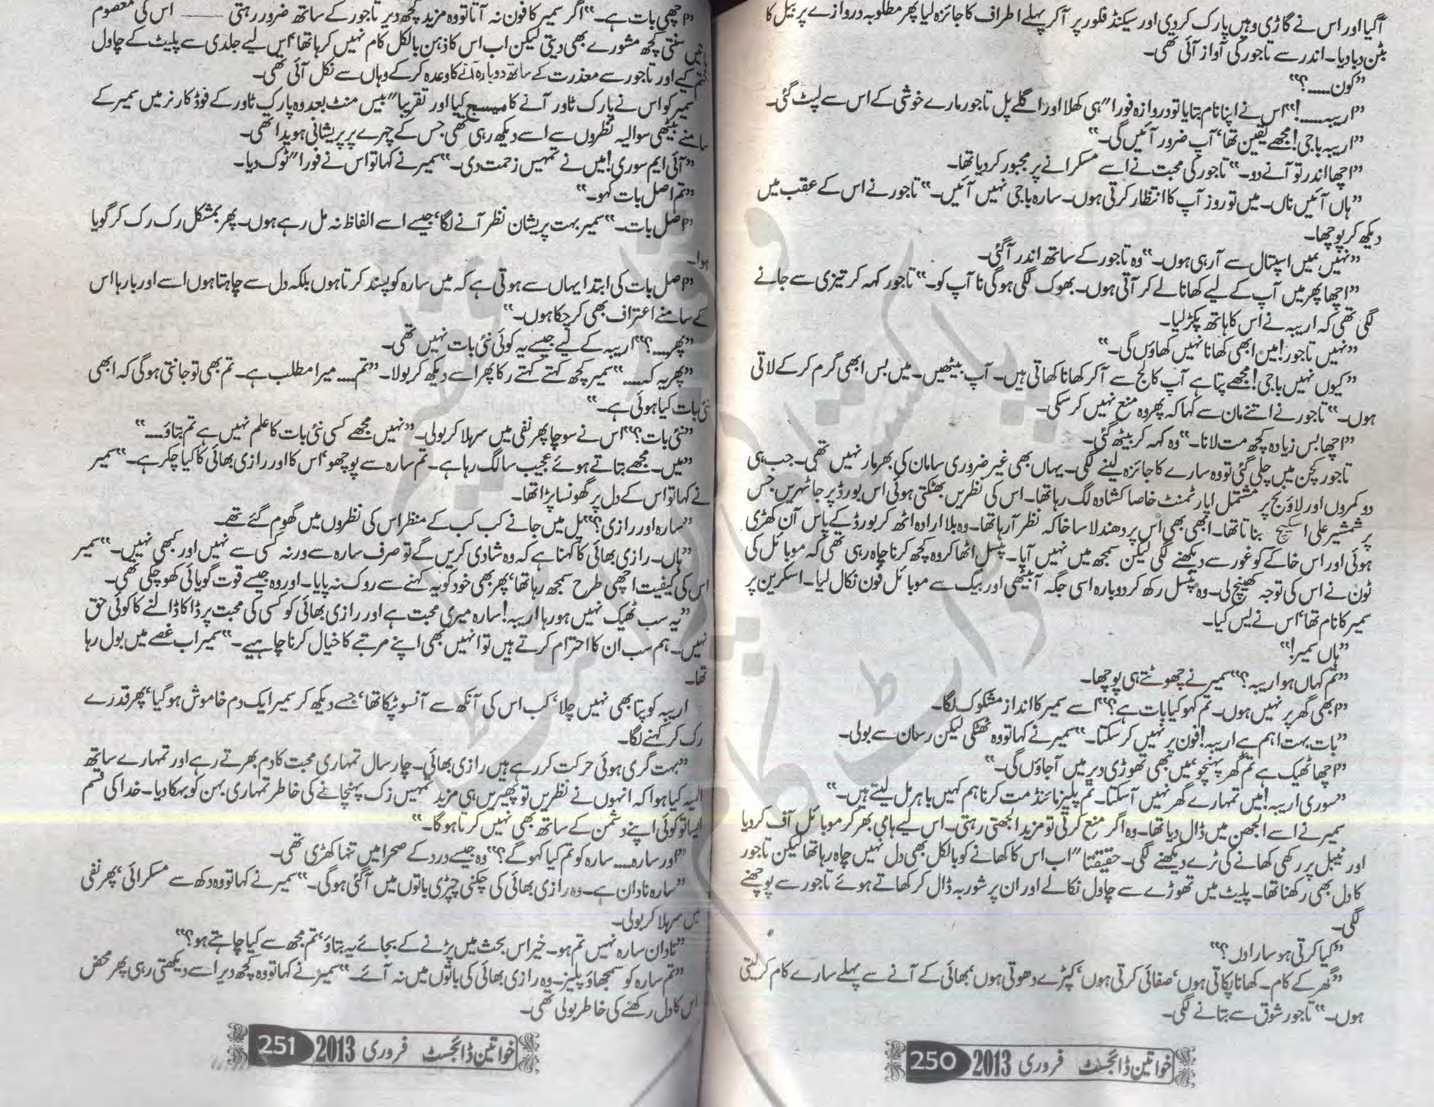 آگیا اور اس نے گاڑی وہیں پارک کر دی اور سیکنڈ فلور پر آکر پہلے اطراف کا جائزہ لیا پھر مطلوبہ دروازے پر بیل کا
بٹن دبا دیا۔ اندر سے تاجور کی آواز آئی تھی۔
"کون.....؟"
"اریبہ.....!" اس نے اپنا نام بتایا تو دروازہ فورا" ہی کھلا اور اگلے پل تاجور مارے خوشی کے اس سے لپٹ گئی۔
"اریبہ باجی! مجھے یقین تھا' آپ ضرور آئیں گی۔"
"اچھا اندر تو آنے دو۔" تاجور کی محبت نے اسے مسکرانے پر مجبور کر دیا تھا۔
"ہاں آئیں ناں۔ میں تو روز آپ کا انتظار کرتی ہوں۔ سارہ باجی نہیں آئیں۔" تاجور نے اس کے عقب میں
دیکھ کر پوچھا۔
"نہیں' میں اسپتال سے آرہی ہوں۔" وہ تاجور کے ساتھ اندر آگئی۔
"اچھا پھر میں آپ کے لیے کھانا لے کر آتی ہوں۔ بھوک لگی ہوگی نا آپ کو۔" تاجور کہہ کر تیزی سے جانے
لگی تھی کہ اریبہ نے اس کا ہاتھ پکڑ لیا۔
"نہیں تاجور! میں ابھی کھانا نہیں کھاؤں گی۔"
"کیوں نہیں باجی! مجھے پتا ہے آپ کالج سے آکر کھانا کھاتی ہیں۔ آپ بیٹھیں۔ میں بس ابھی گرم کر کے لاتی
ہوں۔" تاجور نے اتنے مان سے کہا کہ پھر وہ منع نہیں کر سکی۔
"اچھا بس زیادہ کچھ مت لانا۔" وہ کہہ کر بیٹھ گئی۔
تاجور کچن میں چلی گئی تو وہ سارے کا جائزہ لینے لگی۔ یہاں بھی غیر ضروری سامان کی بھرمار نہیں تھی۔ جب ہی
دو کمروں اور لاؤنج پر مشتمل اپارٹمنٹ خاصا کشادہ لگ رہا تھا۔ اس کی نظریں بھٹکتی ہوئی اس بورڈ پر جا ٹھہریں جس
پر شمشیر علی اسکیچ بناتا تھا۔ ابھی بھی اس پر دھندلا سا خاکہ نظر آرہا تھا۔ وہ بلا ارادہ اٹھ کر بورڈ کے پاس آن کھڑی
ہوئی اور اس خاکے کو غور سے دیکھنے لگی لیکن سمجھ میں نہیں آیا۔ پنسل اٹھا کر وہ کچھ کرنا چاہ رہی تھی کہ موبائل کی
ٹون نے اس کی توجہ کھینچ لی۔ وہ پنسل رکھ کر دوبارہ اسی جگہ آبیٹھی اور بیگ سے موبائل فون نکال لیا۔ اسکرین پر
سمیر کا نام تھا' اس نے یس کیا۔
"ہاں سمیر!"
"تم کہاں ہو اریبہ؟" سمیر نے چھوٹتے ہی پوچھا۔
"ابھی گھر پر نہیں ہوں۔ تم کہو کیا بات ہے؟" اسے سمیر کا انداز مشکوک لگا۔
"بات بہت اہم ہے اریبہ! فون پر نہیں کر سکتا۔" سمیر نے کہا تو وہ ٹھٹکی لیکن رسان سے بولی۔
"اچھا ٹھیک ہے تم گھر پہنچو' میں بھی تھوڑی دیر میں آجاؤں گی۔"
"سوری اریبہ! میں تمہارے گھر نہیں آسکتا۔ تم پلیز مائنڈ مت کرنا ہم کہیں باہر مل لیتے ہیں۔"
سمیر نے اسے الجھن میں ڈال دیا تھا۔ وہ اگر منع کرتی تو مزید الجھتی رہتی۔ اس لیے ہامی بھر کر موبائل آف کر دیا
اور ٹیبل پر رکھی کھانے کی ٹرے دیکھنے لگی۔ حقیقتا" اب اس کا کھانے کو بالکل بھی دل نہیں چاہ رہا تھا لیکن تاجور
کا دل بھی رکھنا تھا۔ پلیٹ میں تھوڑے سے چاول نکالے اور ان پر شوربہ ڈال کر کھاتے ہوئے تاجور سے پوچھنے
لگی۔
"کیا کرتی ہو سارا دن؟"
"گھر کے کام۔ کھانا پکاتی ہوں' صفائی کرتی ہوں' کپڑے دھوتی ہوں' بھائی کے آنے سے پہلے سارے کام کر لیتی
ہوں۔" تاجور شوق سے بتانے لگی۔
خواتین ڈائجسٹ فروری 2013 250
"اچھی بات ہے۔" اگر سمیر کا فون نہ آتا تو وہ مزید کچھ دیر تاجور کے ساتھ ضرور رہتی ــــــ اس کی معصوم
سنتی کچھ مشورے بھی دیتی لیکن اب اس کا ذہن بالکل کام نہیں کر رہا تھا' اس لیے جلدی سے پلیٹ کے چاول
ختم کیے اور تاجور سے معذرت کے ساتھ دوبارہ آنے کا وعدہ کر کے وہاں سے نکل آئی تھی۔
سمیر کو اس نے پارک ٹاور آنے کا میسج کیا اور تقریبا" بیس منٹ بعد وہ پارک ٹاور کے فوڈ کارنر میں سمیر کے
سامنے بیٹھی سوالیہ نظروں سے اسے دیکھ رہی تھی جس کے چہرے پر پریشانی ہویدا تھی۔
"آئی ایم سوری! میں نے تمہیں زحمت دی۔" سمیر نے کہا تو اس نے فورا" ٹوک دیا۔
"تم اصل بات کہو۔"
"اصل بات۔" سمیر بہت پریشان نظر آنے لگا' جیسے اسے الفاظ نہ مل رہے ہوں۔ پھر بمشکل رک رک کر گویا
ہوا۔
"اصل بات کی ابتدا یہاں سے ہوتی ہے کہ میں سارہ کو پسند کرتا ہوں بلکہ دل سے چاہتا ہوں اسے اور بارہا اس
کے سامنے اعتراف بھی کر چکا ہوں۔"
"پھر.....؟" اریبہ کے لیے جیسے یہ کوئی نئی بات نہیں تھی۔
"پھر یہ کہ....." سمیر کچھ کہتے کہتے رکا پھر اسے دیکھ کر بولا۔ "تم.... میرا مطلب ہے۔ تم بھی تو جانتی ہوگی کہ ابھی
نئی بات کیا ہوئی ہے۔"
"نئی بات؟" اس نے سوچا پھر نفی میں سر ہلا کر بولی۔ "نہیں مجھے کسی نئی بات کا علم نہیں ہے تم بتاؤ....."
"میں۔ مجھے بتاتے ہوئے عجیب سا لگ رہا ہے۔ تم سارہ سے پوچھو' اس کا اور رازی بھائی کا کیا چکر ہے۔" سمیر
نے کہا تو اس کے دل پر گھونسا پڑا تھا۔
"سارہ اور رازی؟" پل میں جانے کب کب کے منظر اس کی نظروں میں گھوم گئے تھے۔
"ہاں۔ رازی بھائی کا کہنا ہے کہ وہ شادی کریں گے تو صرف سارہ سے ورنہ کسی سے نہیں اور کبھی نہیں۔" سمیر
اس کی کیفیت اچھی طرح سمجھ رہا تھا' پھر بھی خود کو یہ کہنے سے روک نہ پایا۔ اور وہ جیسے قوت گویائی کھو چکی تھی۔
"یہ سب ٹھیک نہیں ہو رہا اریبہ! سارہ میری محبت ہے اور رازی بھائی کو کسی کی محبت پر ڈاکا ڈالنے کا کوئی حق
نہیں۔ ہم سب ان کا احترام کرتے ہیں تو انہیں بھی اپنے مرتبے کا خیال کرنا چاہیے۔" سمیر اب غصے میں بول رہا
تھا۔
اریبہ کو پتا بھی نہیں چلا' کب اس کی آنکھ سے آنسو ٹپکا تھا' جسے دیکھ کر سمیر ایک دم خاموش ہو گیا' پھر قدرے
رک کر کہنے لگا۔
"بہت گری ہوئی حرکت کر رہے ہیں رازی بھائی۔ چار سال تمہاری محبت کا دم بھرتے رہے اور تمہارے ساتھ
المیہ کیا ہوا کہ انہوں نے نظریں تو پھیریں ہی مزید تمہیں زک پہنچانے کی خاطر تمہاری بہن کو بہکا دیا۔ خدا کی قسم
ایسا تو کوئی اپنے دشمن کے ساتھ بھی نہیں کرتا ہوگا۔"
"اور سارہ.... سارہ کو تم کیا کہو گے؟" وہ جیسے درد کے صحرا میں تنہا کھڑی تھی۔
"سارہ نادان ہے۔ وہ رازی بھائی کی چکنی چپڑی باتوں میں آگئی ہوگی۔" سمیر نے کہا تو وہ دکھ سے مسکرائی' پھر نفی
میں سر ہلا کر بولی۔
"نادان سارہ نہیں تم ہو۔ خیر اس بحث میں پڑنے کے بجائے یہ بتاؤ' تم مجھ سے کیا چاہتے ہو؟"
"تم سارہ کو سمجھاؤ پلیز۔ وہ رازی بھائی کی باتوں میں نہ آئے۔" سمیر نے کہا تو وہ کچھ دیر اسے دیکھتی رہی پھر محض
اس کا دل رکھنے کی خاطر بولی تھی۔
خواتین ڈائجسٹ فروری 2013 251